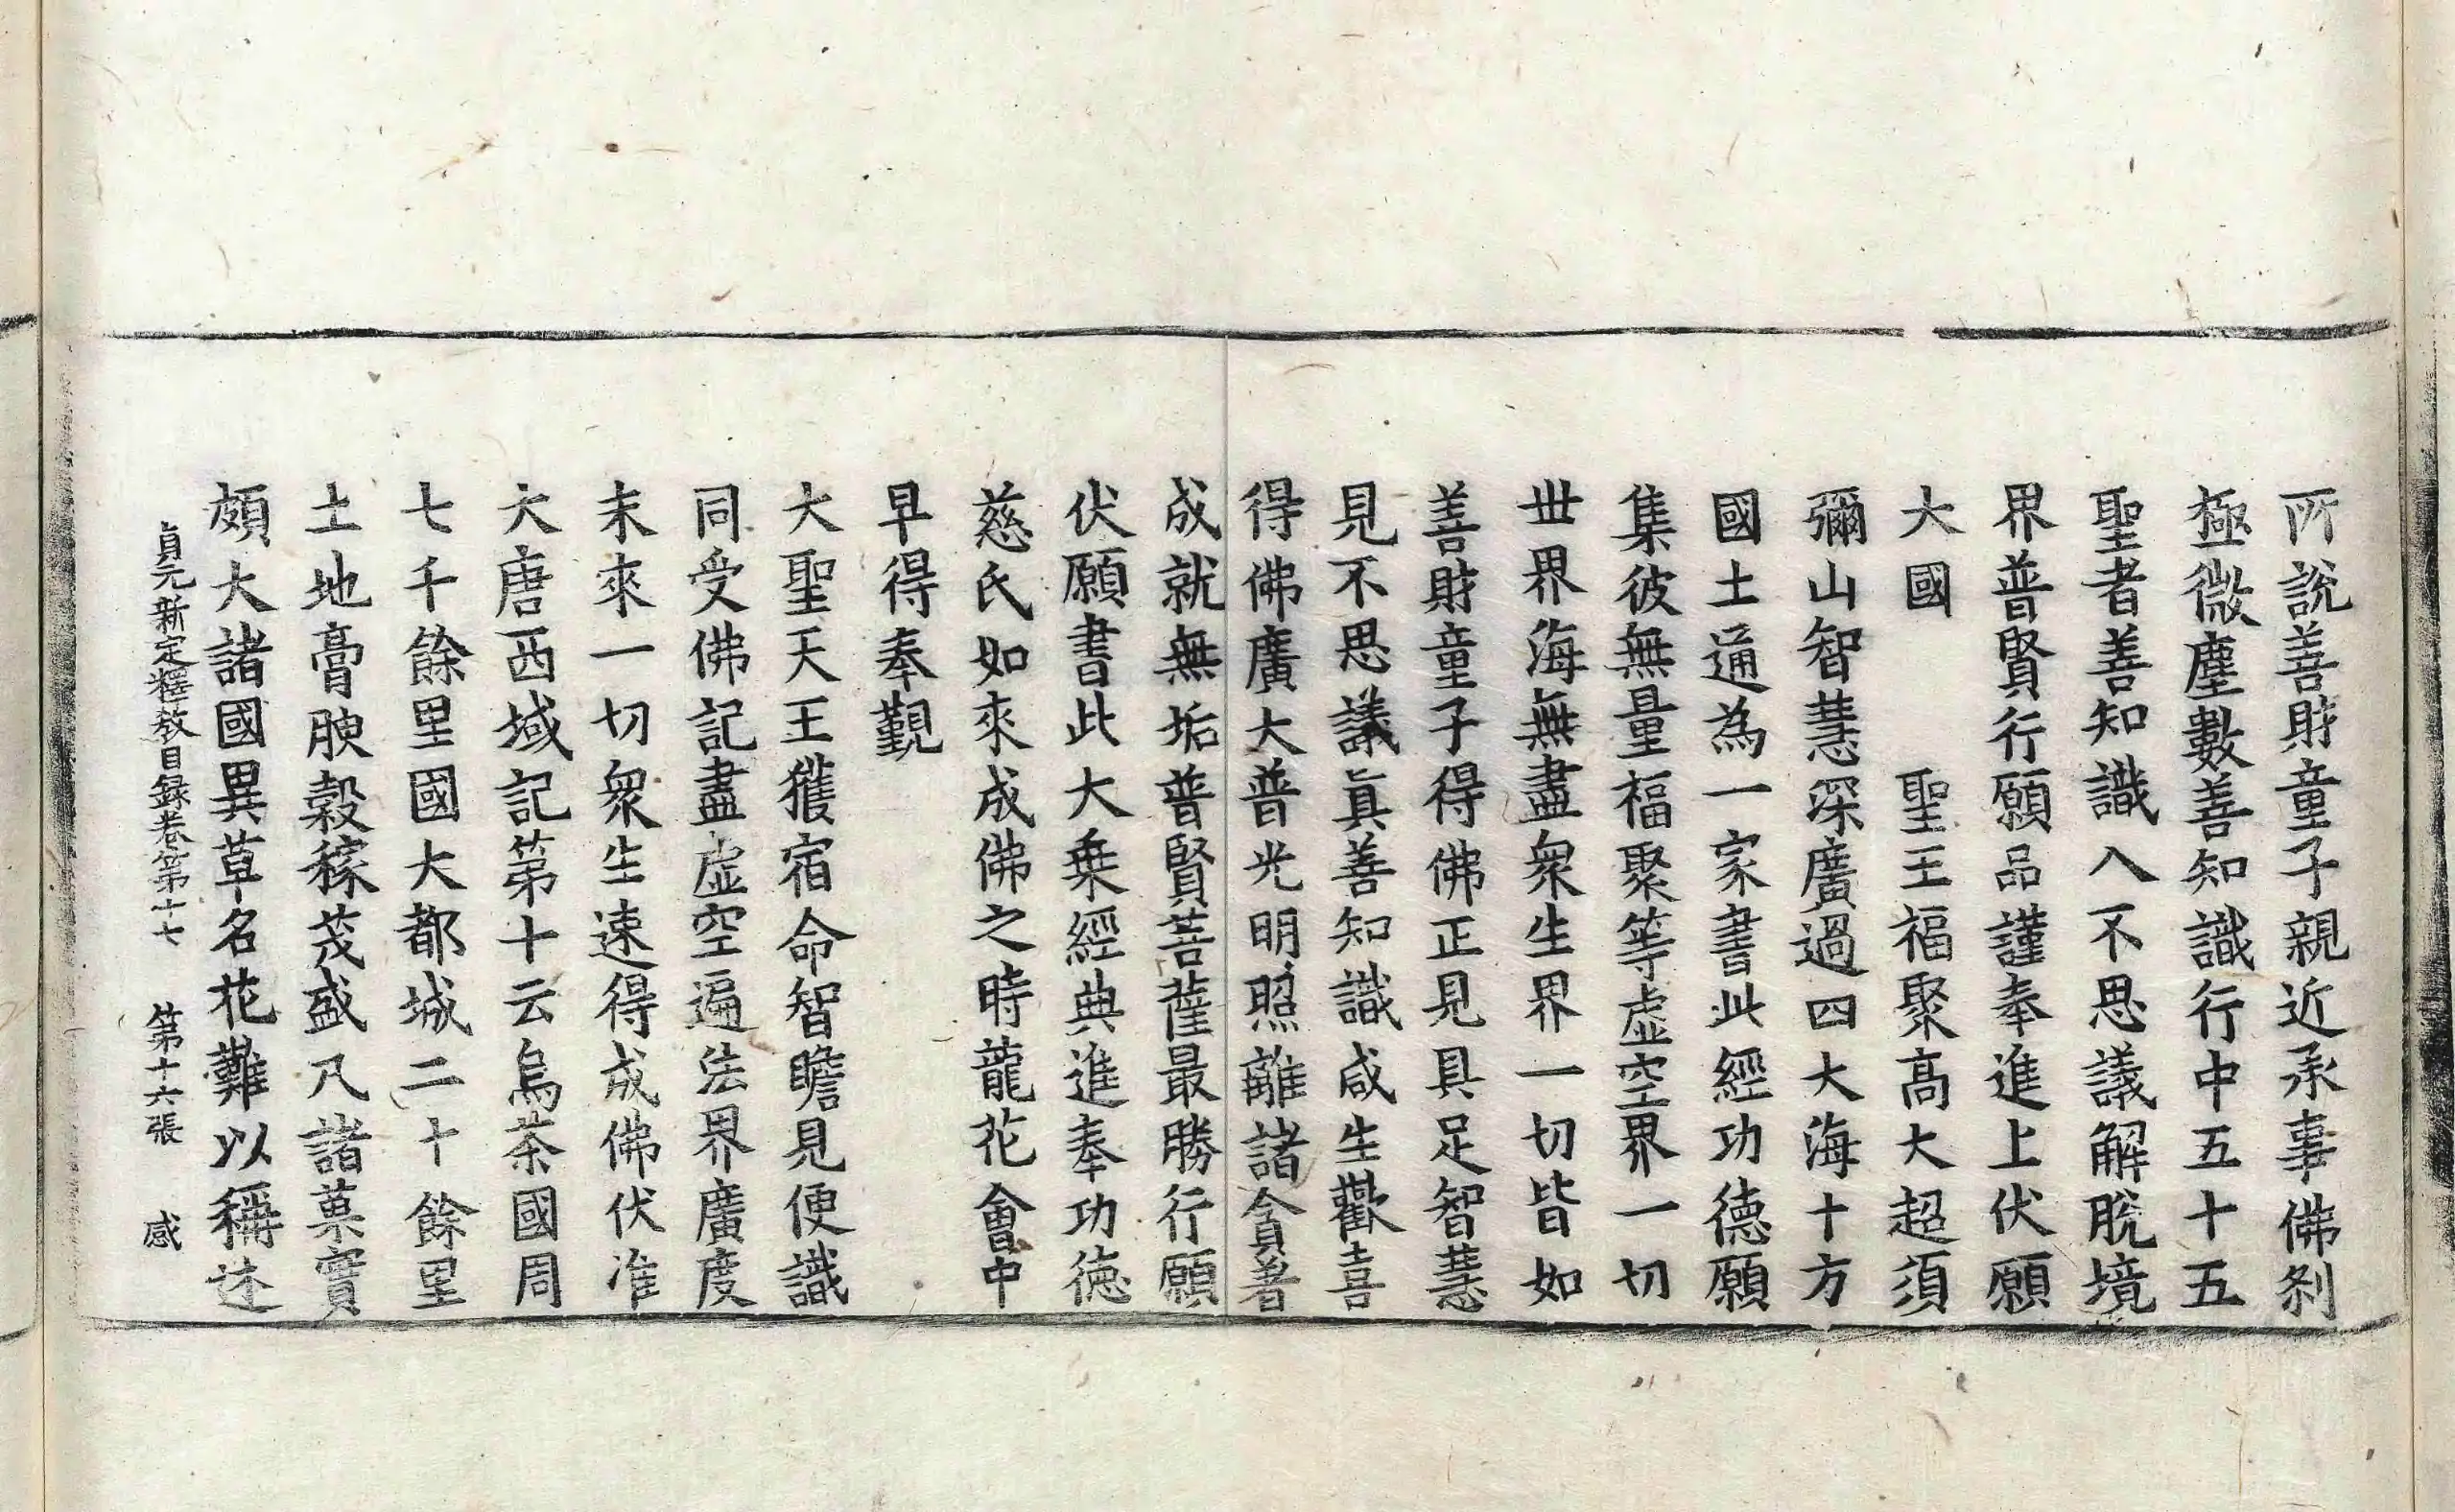 所說善財童子親近承事佛刹
極微塵數善知識行中五十五
聖者善知識入不思議解脫境
界普賢行願品謹奉進上伏願
大國　　聖王福聚高大超須
彌山智慧深廣過四大海十方
國土通為一家書此經功德願
集彼無量福聚等虛空界一切
世界海無盡衆生界一切皆如
善財童子得佛正見具足智慧
見不思議眞善知識咸生歡喜
得佛廣大普光明照離諸貪著
成就無垢普賢菩薩最勝行願
伏願書此大乗經典進奉功德
慈氏如來成佛之時龍花會中
早得奉覲
大聖天王獲宿命智瞻見便識
同受佛記盡虛空遍法界廣度
末來一切衆生速得成佛伏准
大唐西域記第十云烏茶國周
七千餘里國大都城二十餘里
土地膏腴穀稼茂盛凡諸菓實
頗大諸國異草名花難以稱述
貞元新定釋教目録卷第十七　第十六張　感